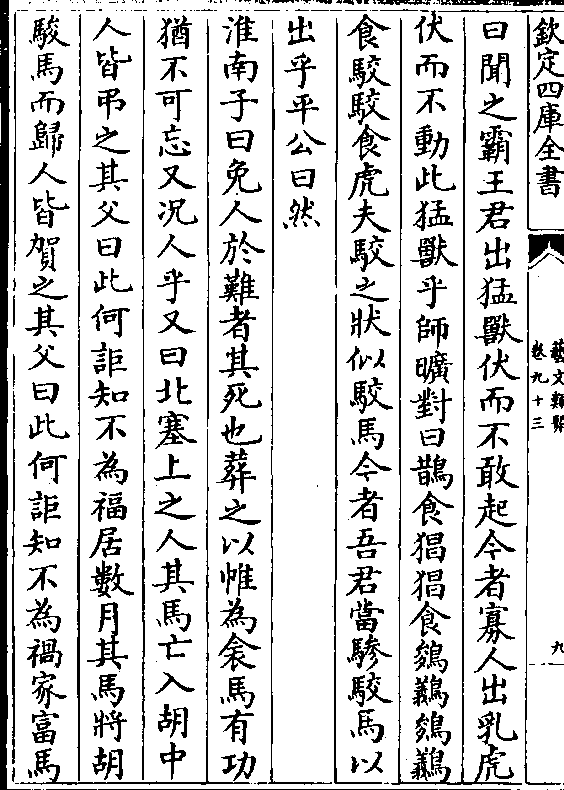 欽定四庫全書
藝文類聚
卷九十三
九
曰聞之霸王君出猛獸伏而不敢起今者寡人出乳虎
伏而不動此猛獸乎師曠對曰鵲食猖猖食鵕鸃鵕鸃
食駮駮食虎夫駮之狀似駮馬今者吾君當驂駮馬以
出乎平公曰然
淮南子曰免人於難者其死也葬之以帷為衾馬有功
猶不可忘又况人乎又曰北塞上之人其馬亡入胡中
人皆弔之其父曰此何詎知不為福居數月其馬將胡
駿馬而歸人皆賀之其父曰此何詎知不為禍家富馬